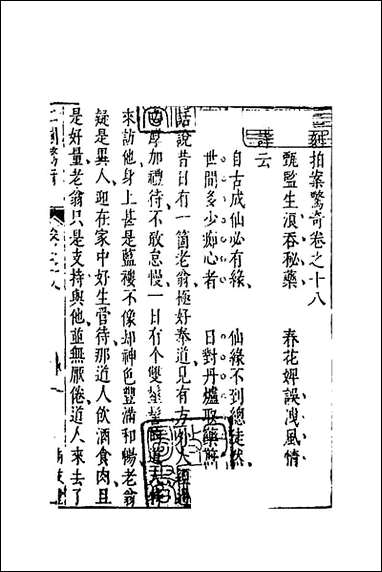 二刻拍案驚奇卷之十八
甄監生浪吞秘藥　春花婢誤洩風情
詩云
自古成仙必有緣　仙緣不到總徒然
世間多少痴心者　日對丹爐取藥煎
話說昔日有一箇老翁極好奉道見有方外人經過
必厚加禮待不敢怠慢一日有个雙丫髻的道人
來訪他身上甚是藍褸不像却神色豐滿和暢老翁
疑是異人迎在家中好生管待那道人飲酒食肉且
是好量老翁只是支持與他並無厭倦道人來去了
二刻驚奇　卷之十八